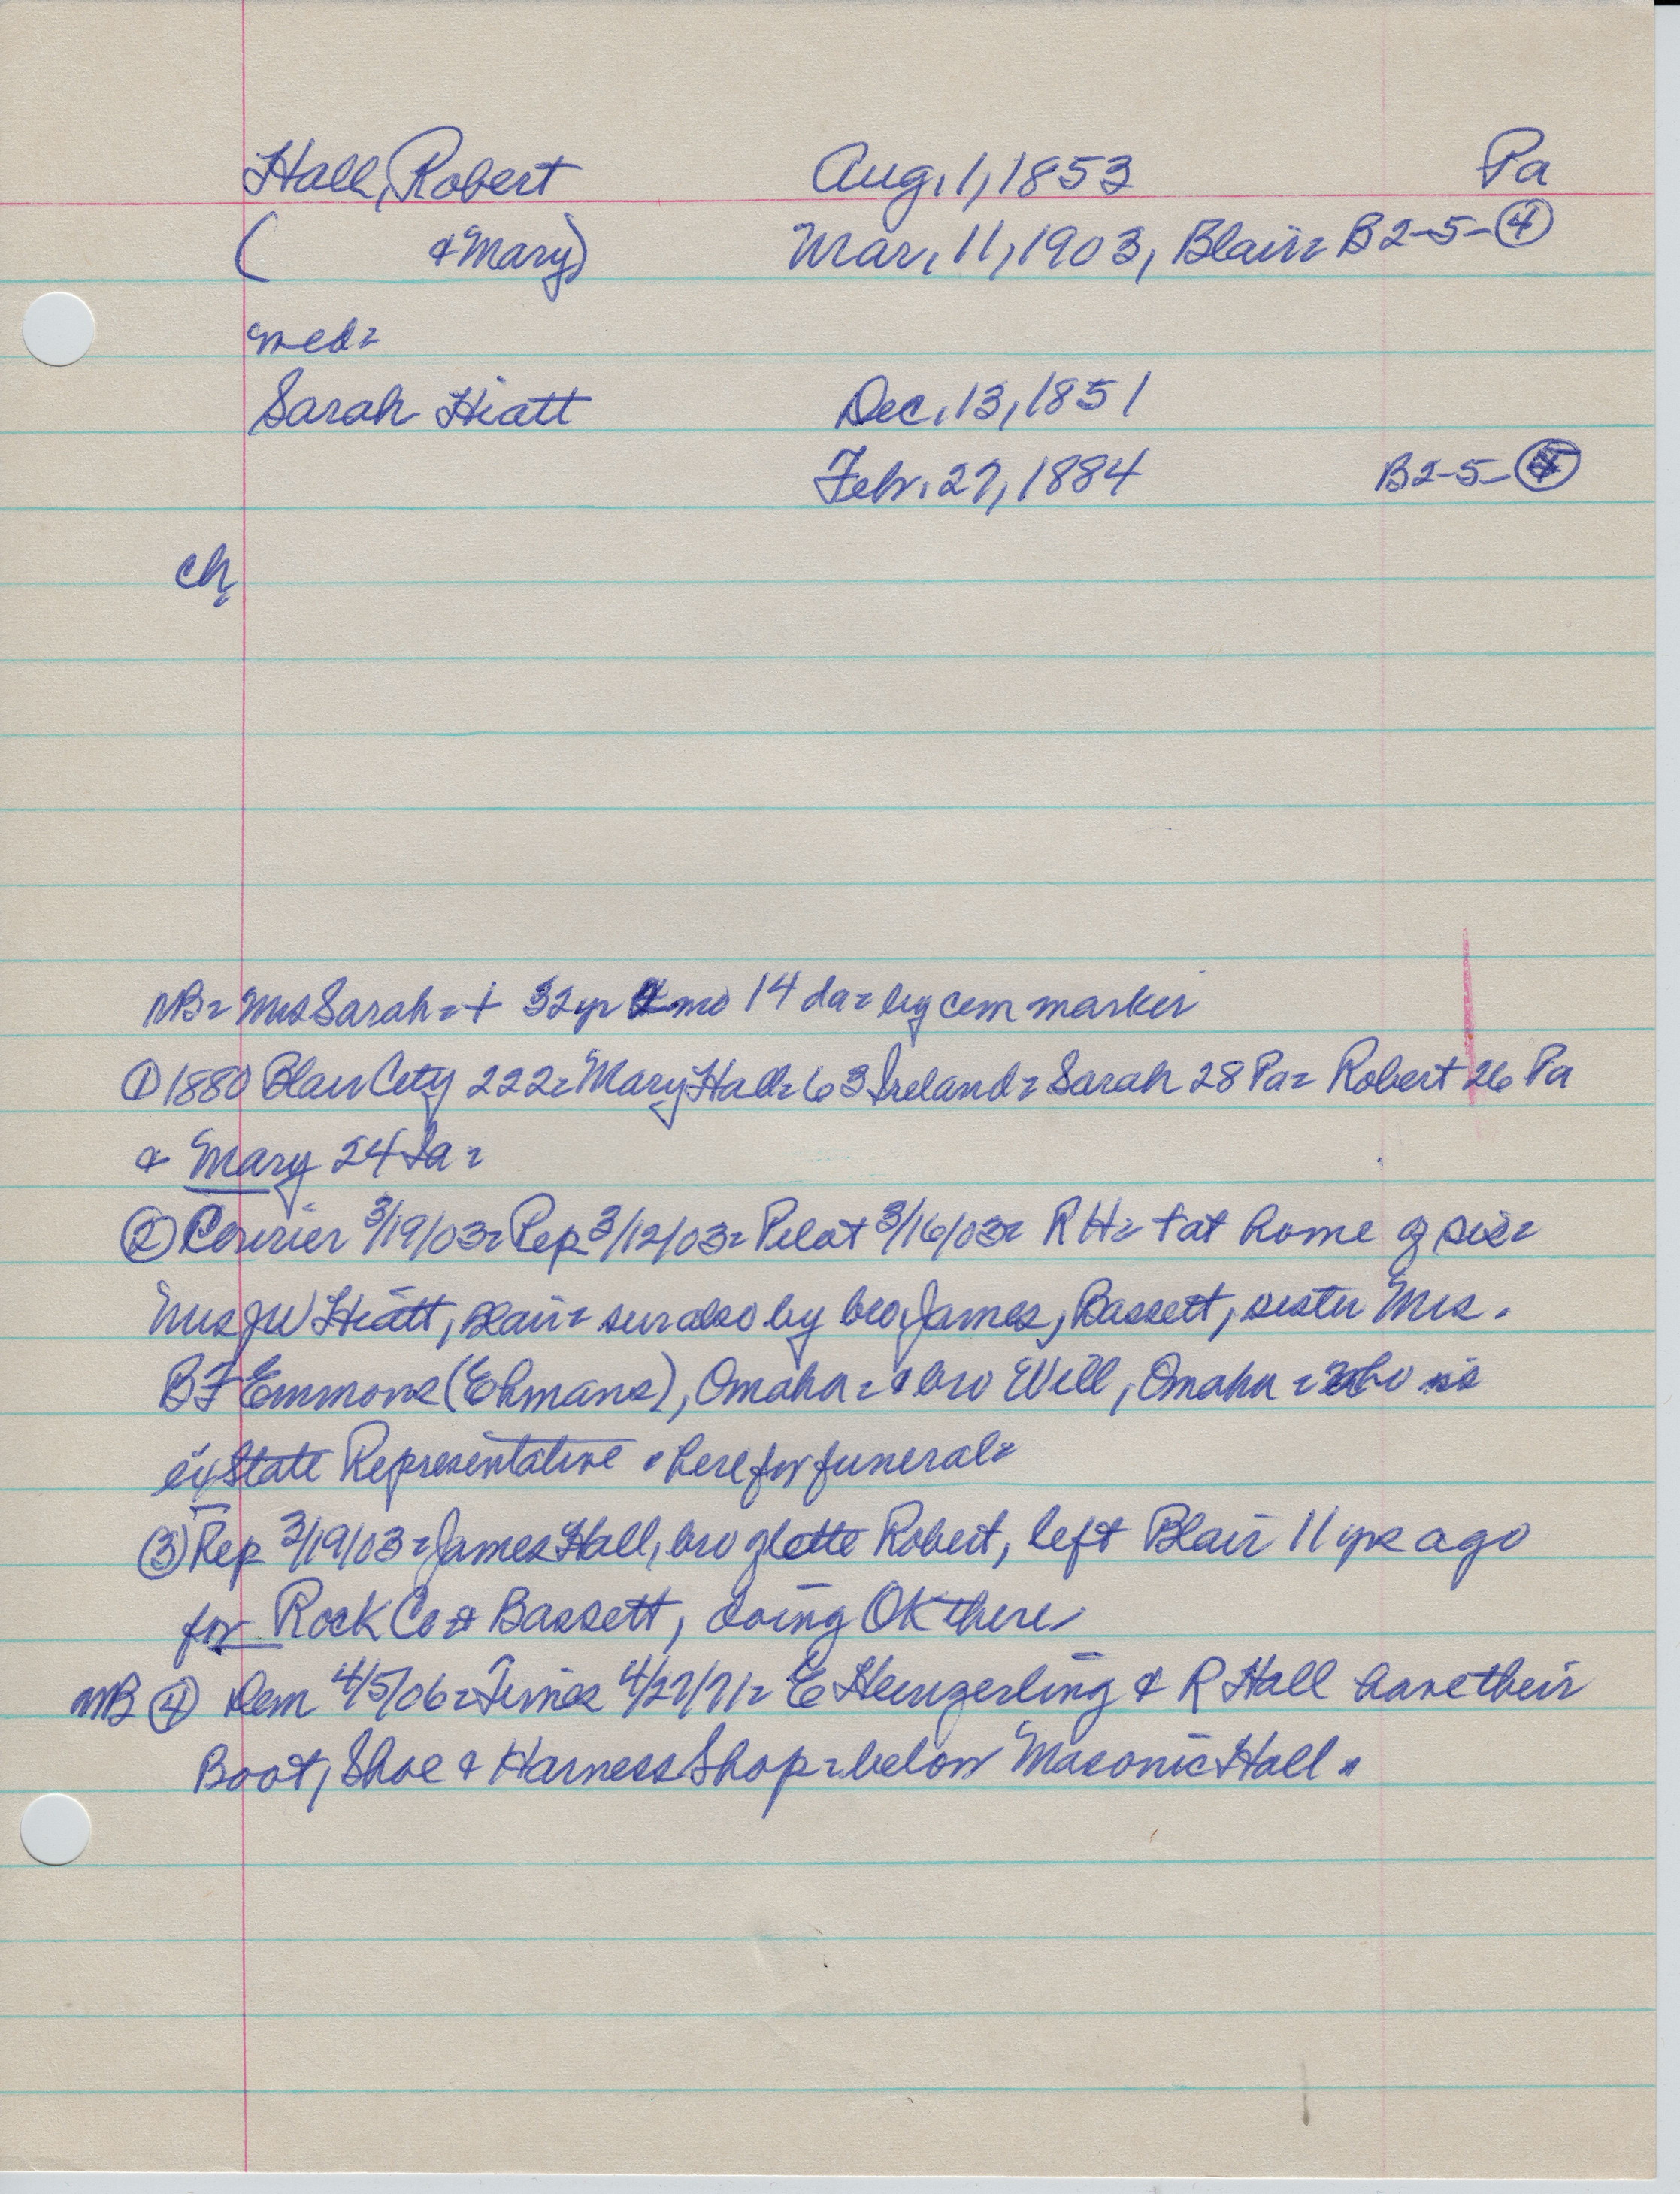 Hall, Robert Aug. 1, 1853 Pa
( & Mary) Mar. 11, 1903, Blair= B2-5-④
med=
Sarah Hiatt Dec. 13, 1851
Febr. 27, 1884 B2-5-
ch
NB= Mrs Sarah=+ 32yr 2mo 14 da= by cem marker
① 1880 Blair City 222= Mary Hall= 63 Ireland= Sarah 28 Pa= Robert 26 Pa
& Mary 24 Ia=
② Courier 3/19/03= Rep 3/12/03= Pilot 3/16/03= RH= + at home of sis=
Mrs JW Hiatt, Blair= sur also by bro James, Bassett, sister Mrs.
BF Emmons (Ehmans), Omaha= & bro Will, Omaha= who is
ex State Representative= here for funeral=
③ Rep 3/19/03= James Hall, bro of late Robert, left Blair 11 yrs ago
for Rock Co & Bassett, doing OK there
NB ④ Dem 4/5/06= Times 4/27/71= E Heinzerling & R Hall have their
Boot, Shoe & Harness Shop= below Masonic Hall=